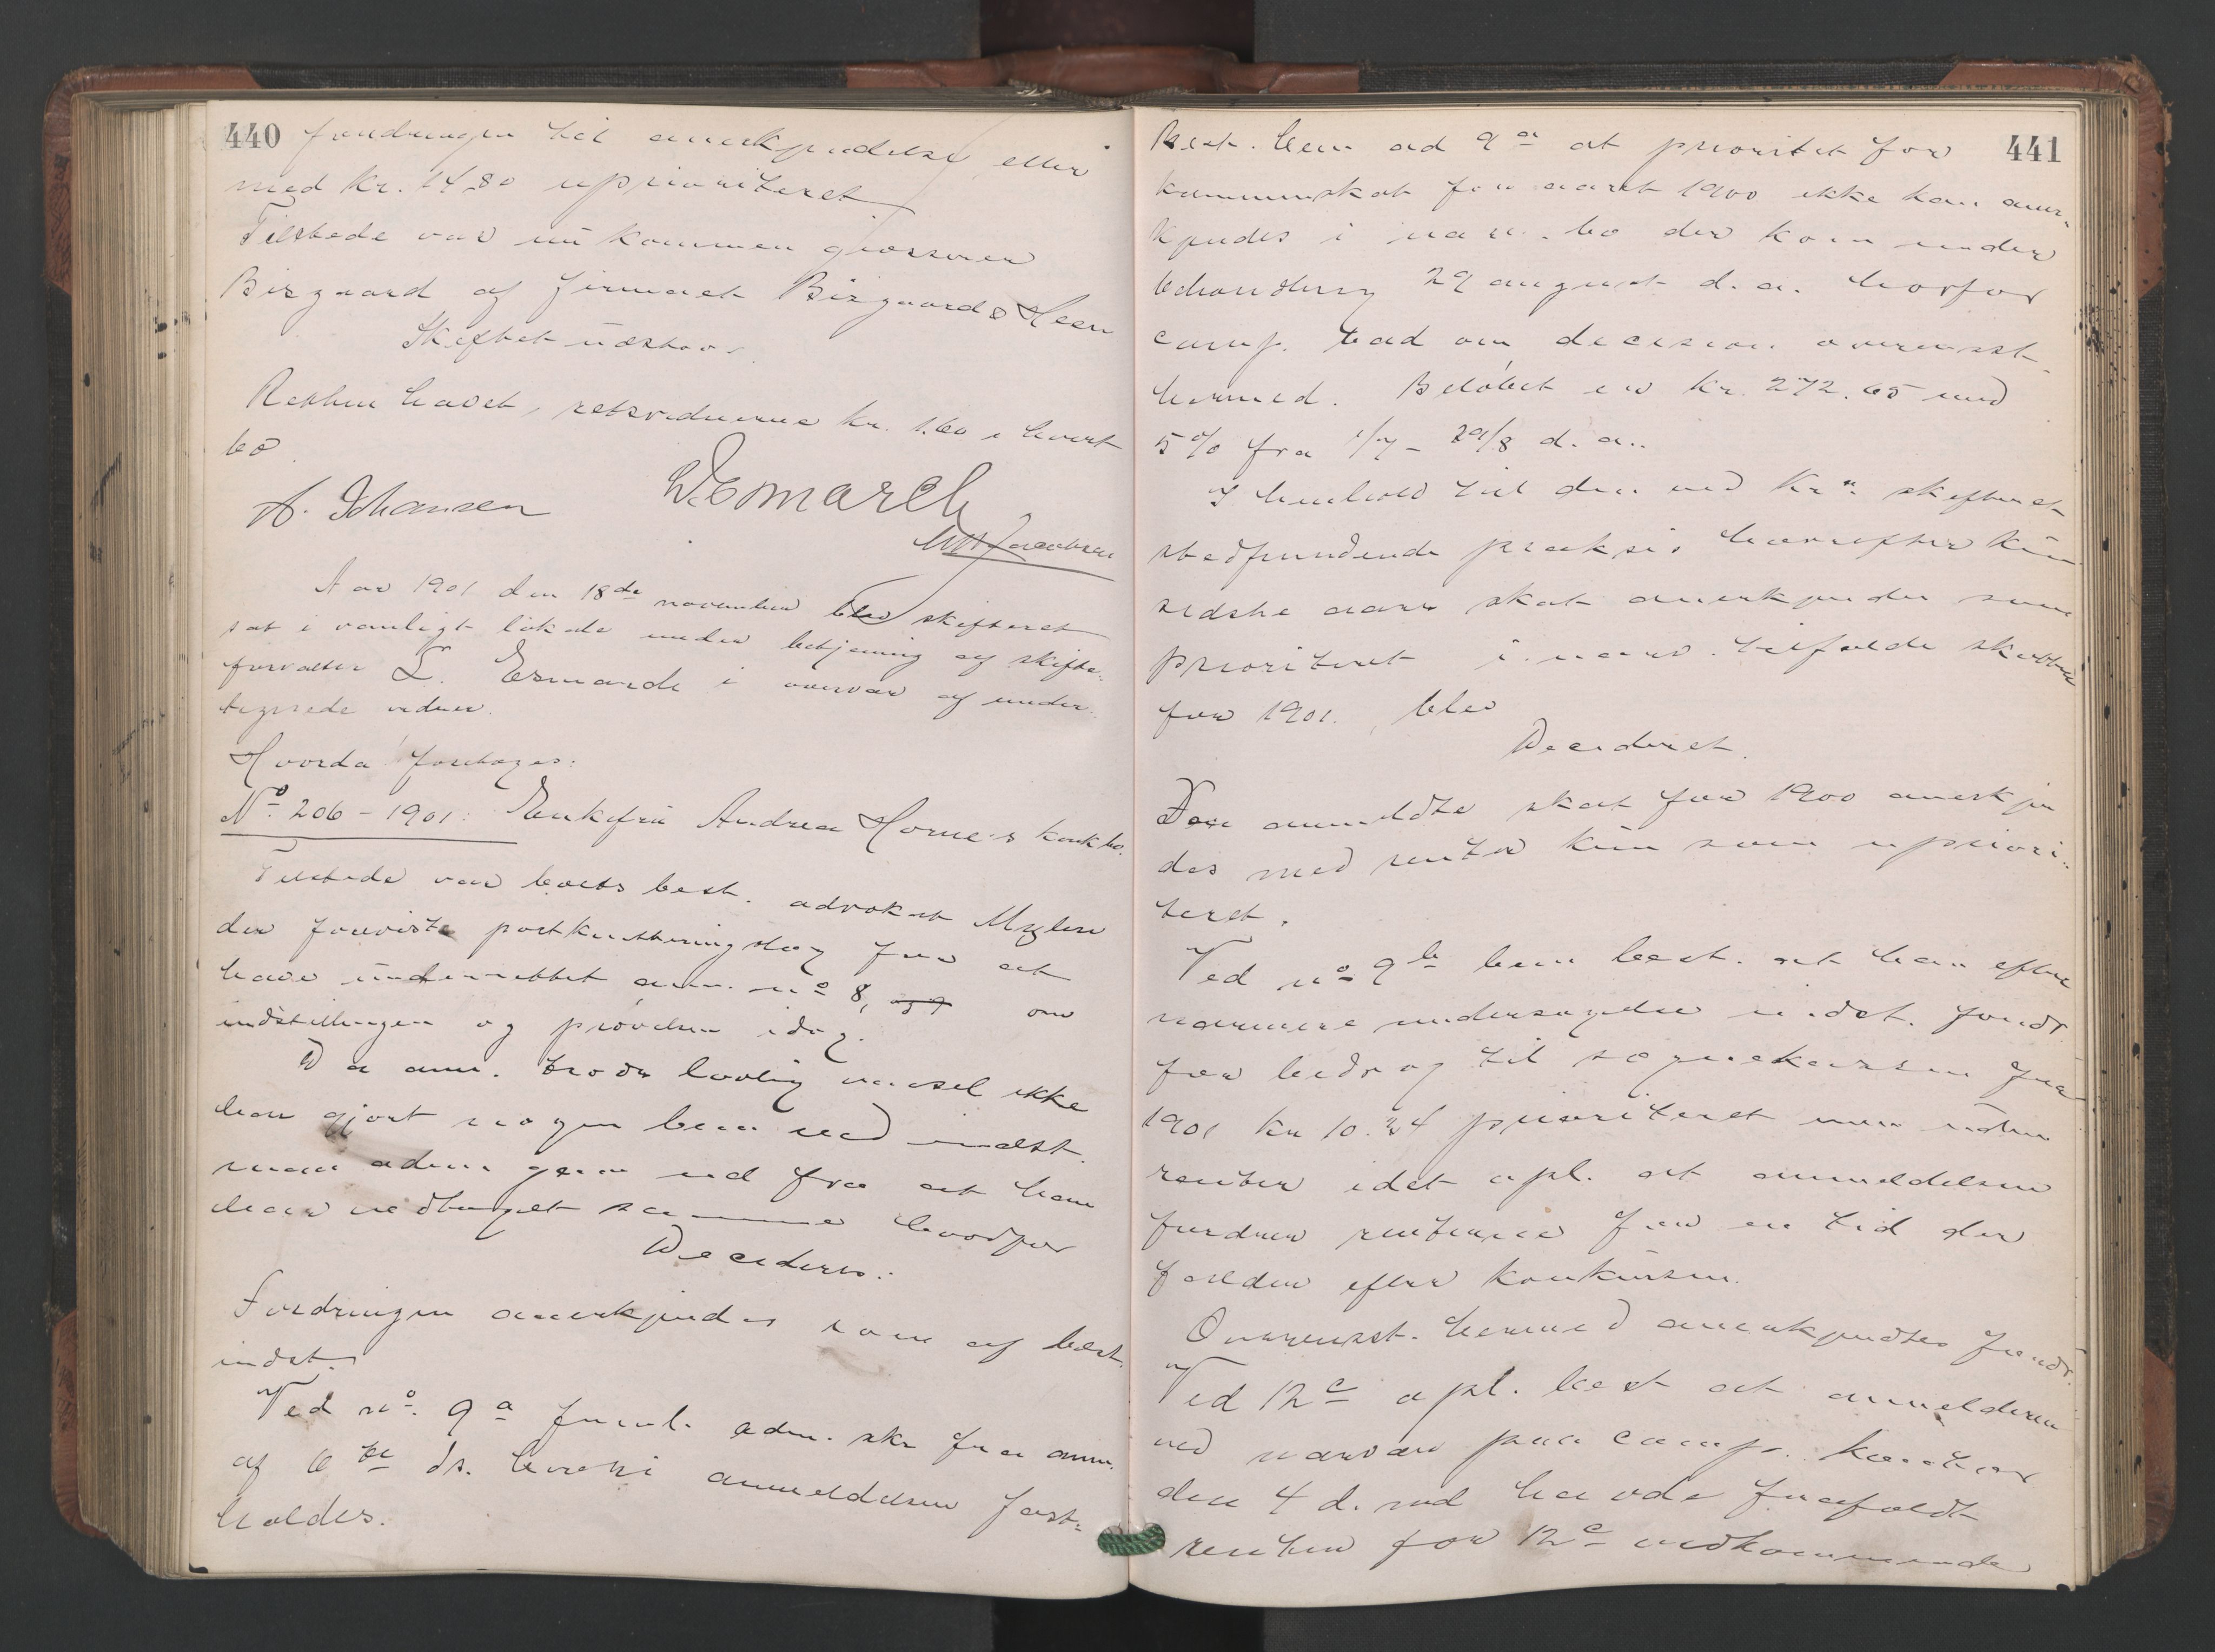 440 fordringen til anerkjendelse eller
med Kr. 14.80 uprioriteret.
Tilstede var nu kommen grosserer
Bisgaard af firmaet Bisgaard & Heen
Skiftet udstaar.
Retten hævet, retsvidnerne kr. 1.60 i hvert
bo
A. Johansen
Aar 1901 den 18de november blev skifteret
sat i vanligt lokale under betjening af skifte-
forvalter L. Esmarch i overvær af under-
tegnede vidner.
Hvorda foretoges:
No. 206 - 1901: Enkefru Andrea Horne's konkbo.
Tilstede var boets best. advokat
der foreviste postkvitteringsbog for at
have underrettet anm. no 8, og 9 om
indstillingen og prøvelsen idag.
Da anm. trods lovlig varsel ikke
har gjort nogen bem. ved indst.
man adm. gaar ud fra at han
har vedtaget samme hvorfor
Decideres:
Fordringen anerkjendes som af best.
indst.
Ved no. 9a freml. adm. skr fra anm.
af 6te ds. hvori anmeldelsen fast-
holdes.
441
Best. bem ad 9a at prioritet for
kommuneskat for aaret 1900 ikke kan aner-
kjendes i nærv. bo der kom under
behandling 29 august d. a. hvorfor
comp. bad om decision overensst.
hermed. Beløbet er kr. 272.65 med
5% fra 1/7 - 29/8 d. a..
I henhold til den ved Kra skifteret
stedfundende praksis hvorefter kun
sidste aars skat anerkjendes som
prioriteret i nærv. tilfælde skatten
for 1901. blev
Decideret.
Den anmeldte skat for 1900 anerkjen
des med renter kun som upriori-
teret.
Ved no 9b bem best. at han efter
nærmere undersøgelse indst. fordr.
for bidrag til sognekassen for
1901 kr 10.24 prioriteret men uden
renter idet opl. at anmeldelsen
fordrer renterne for en tid der
falder efter konkursen.
Overensst. hermed anerkjendtes fordr.
Ved 12c opl. best at anmelderen
ved nærvær paa comp. kontor
den 4 d. md havde frafaldt
renten for 12c vedkommende